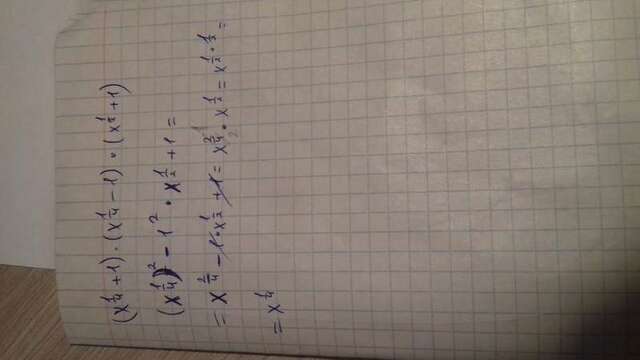 (x^{1/4} + 1) · (x^{1/4} - 1) · (x^{1/2} + 1)
(x^{1/4})^2 - 1^2 · x^{1/2} + 1 =
= x^{2/4} - 1 · x^{1/2} + 1 = x^{2/4} · x^{1/2} = x^{1/2 · 1/2} =
= x^{1/4}